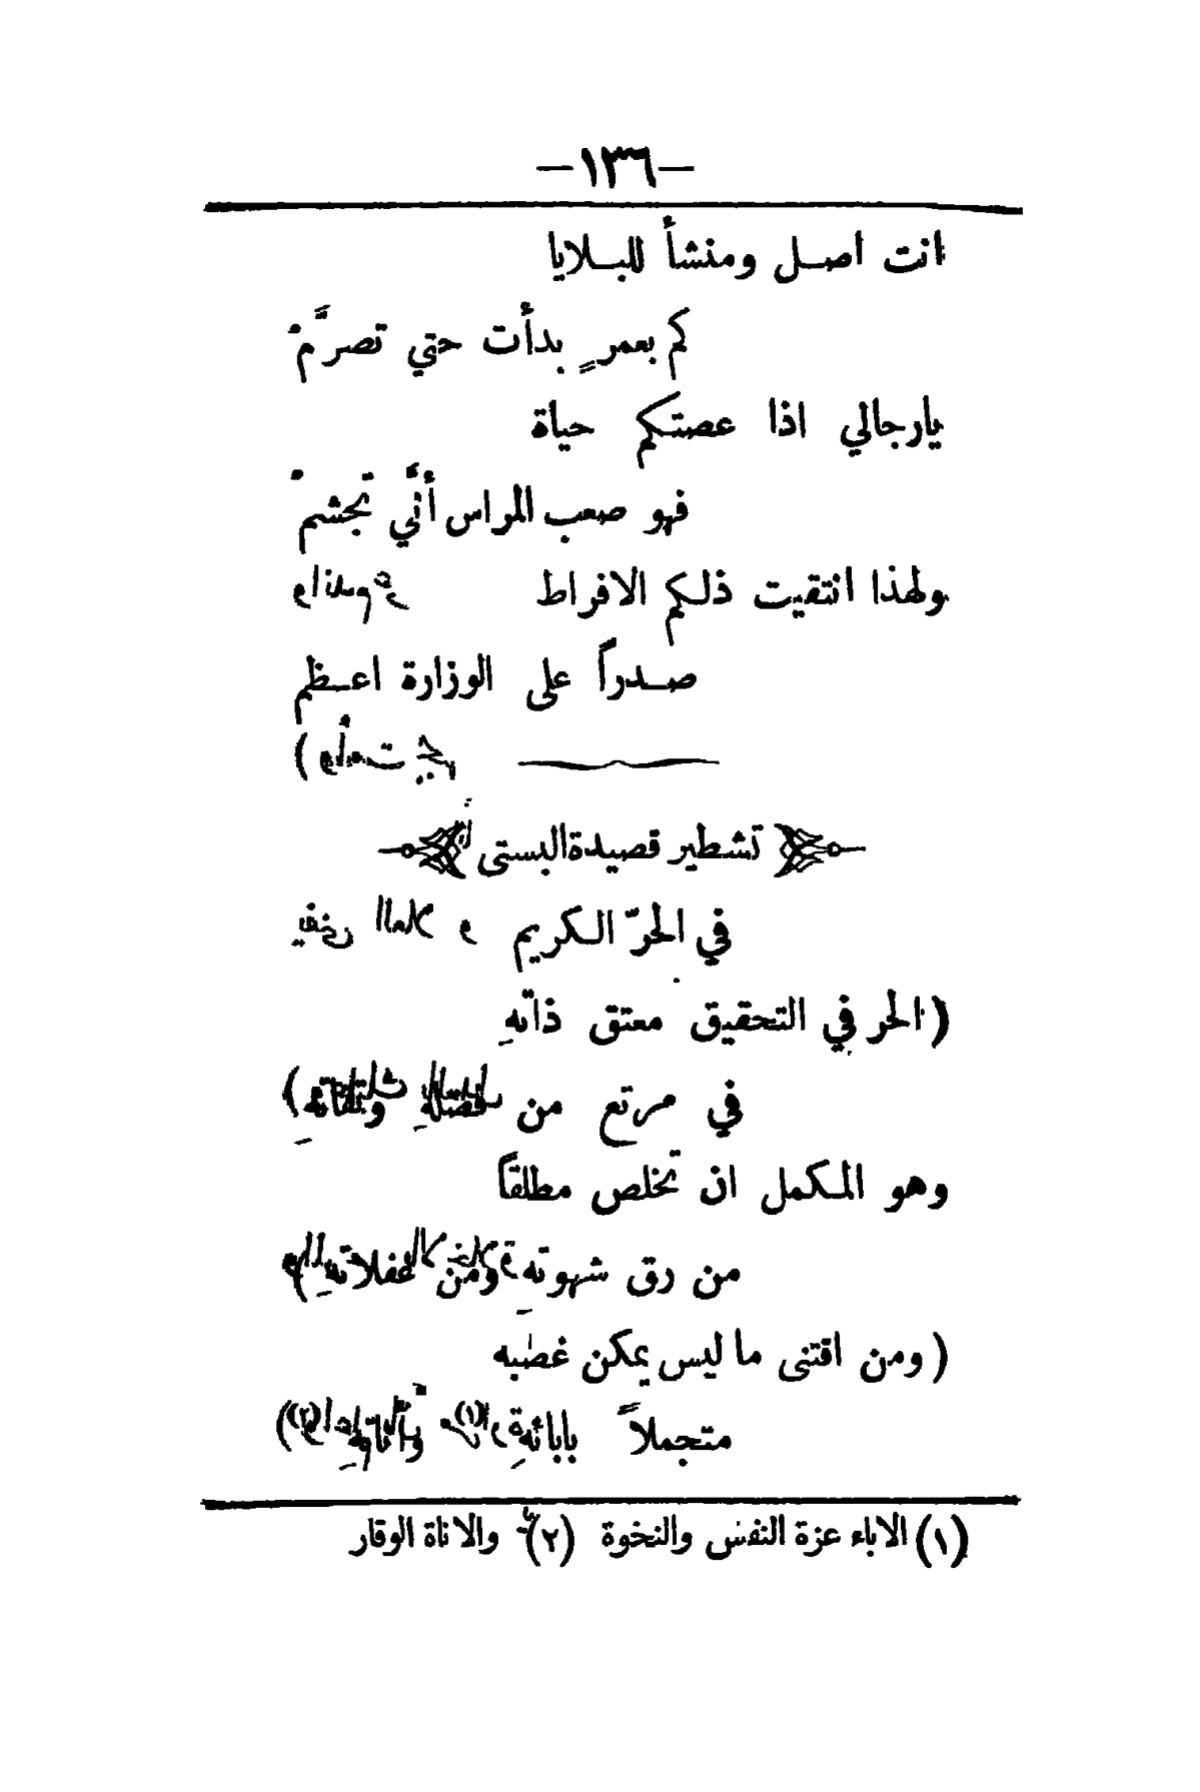 —١٣٦—
انت اصل ومنشأ للبلايا
كم بعمرٍ بدأت حتي تصرَّمْ
يارجالي اذا عصتكم حياة
فهو صعب المراس أنَّي تجشمْ
ولهذا انتقيت ذلكم الافراط
صدراً على الوزارة اعظم
تشطير قصيدة البستى
في الحرّ الكريم
(الحر في التحقيق معتق ذاتهِ
في مرتع من
وهو المكمل ان تخلص مطلقاً
من رق شهوتهِ ومن غفلاتهِ)
(ومن اقتنى ما ليس يمكن غصبه
متجملاً بابائهِ (١) (٢))
(١) الاباء عزة النفس والنخوة (٢) والاناة الوقار